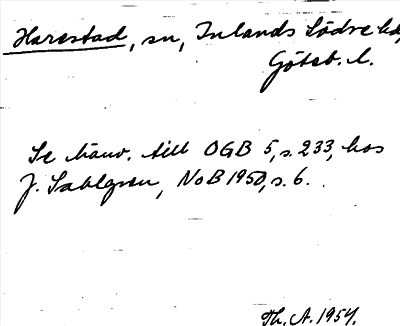 Harestad, sn, Inlands Södre hd,
Göteb. l.
Se hänv. till OGB 5, s. 233, hos
J. Sahlgren, NoB 1950, s. 6.
Th. A. 1954.